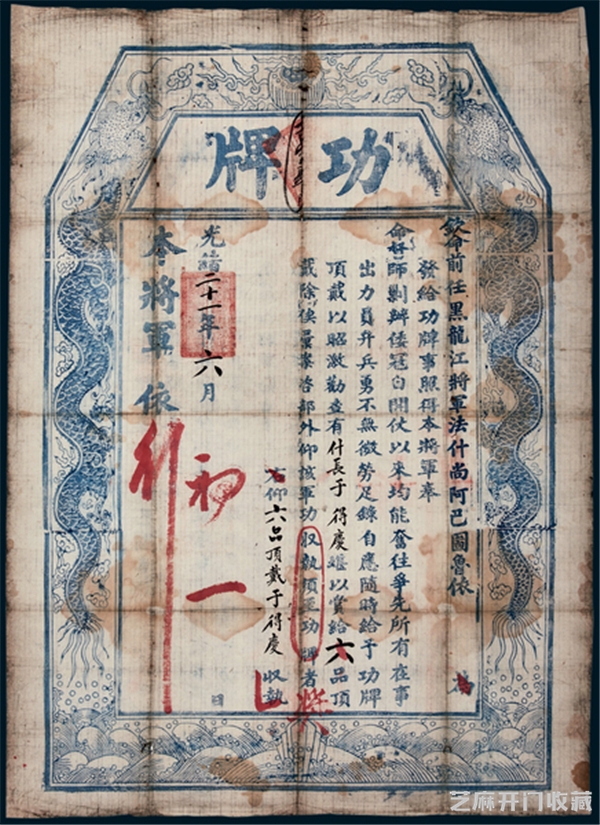 功牌
欽命前任黑龍江將軍法什尚阿巴圖魯依 為
發給功牌事照得本將軍奉
命督師剿辦倭寇自開仗以來均能奮往爭先所有在事
出力員弁兵勇不無微勞足錄自應隨時給予功牌
頂戴以昭激勸查有什長于得慶堪以賞給六品頂
戴除俟彙案咨部外仰該軍功收執須至功牌者
獎
右仰六品頂戴于得慶 收執
光緒二十一年六月 初一 日
本將軍依
行
芝麻开门收藏